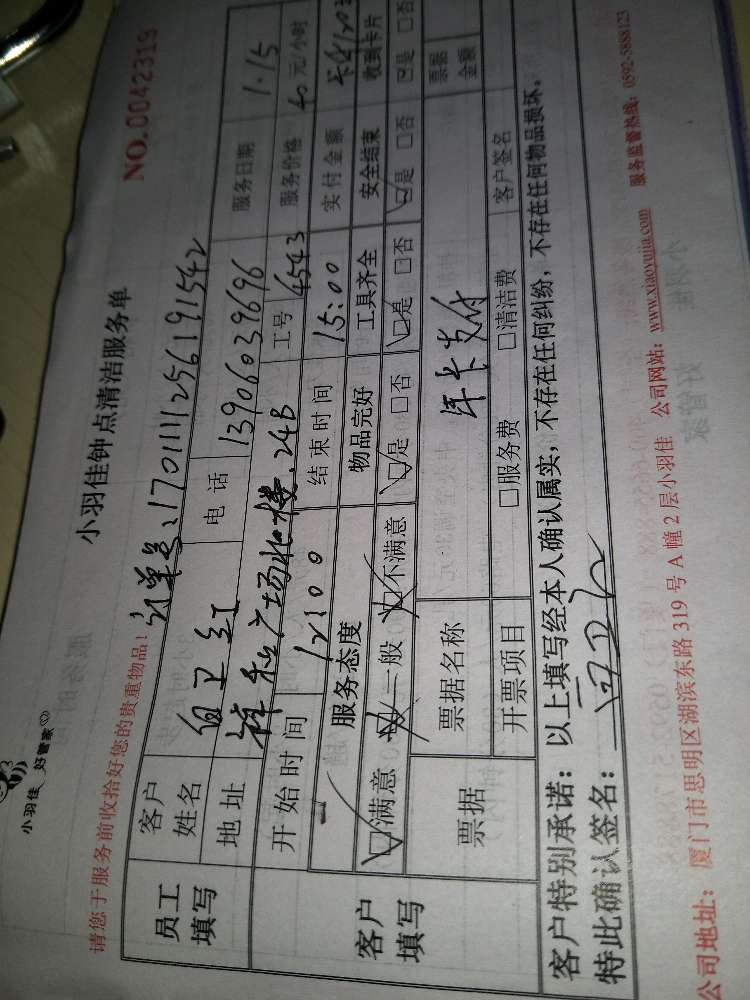 小羽佳 好管家
小羽佳钟点清洁服务单
NO.0042319
请您于服务前收拾好您的贵重物品!
订单号:1701111256191542
员工填写
客户姓名 白卫红 电话 13906039696 服务日期 1.15
地址 祥和广场北楼.24B 工号 4543 服务价格 40元/小时
开始时间 12:00 结束时间 15:00 实付金额
客户填写
服务态度 物品完好 工具齐全 安全结束 收到卡片
☑满意 □一般 □不满意 ☑是 □否 ☑是 □否 ☑是 □否 ☑是 □否
票据 票据名称 年卡支付 票据金额
开票项目 □服务费 □清洁费 客户签名
客户特别承诺:以上填写经本人确认属实,不存在任何纠纷,不存在任何物品损坏。
特此确认签名:
公司地址:厦门市思明区湖滨东路319号A幢2层小羽佳 公司网站:www.xiaoyujia.com 服务监督热线:0592-3888123